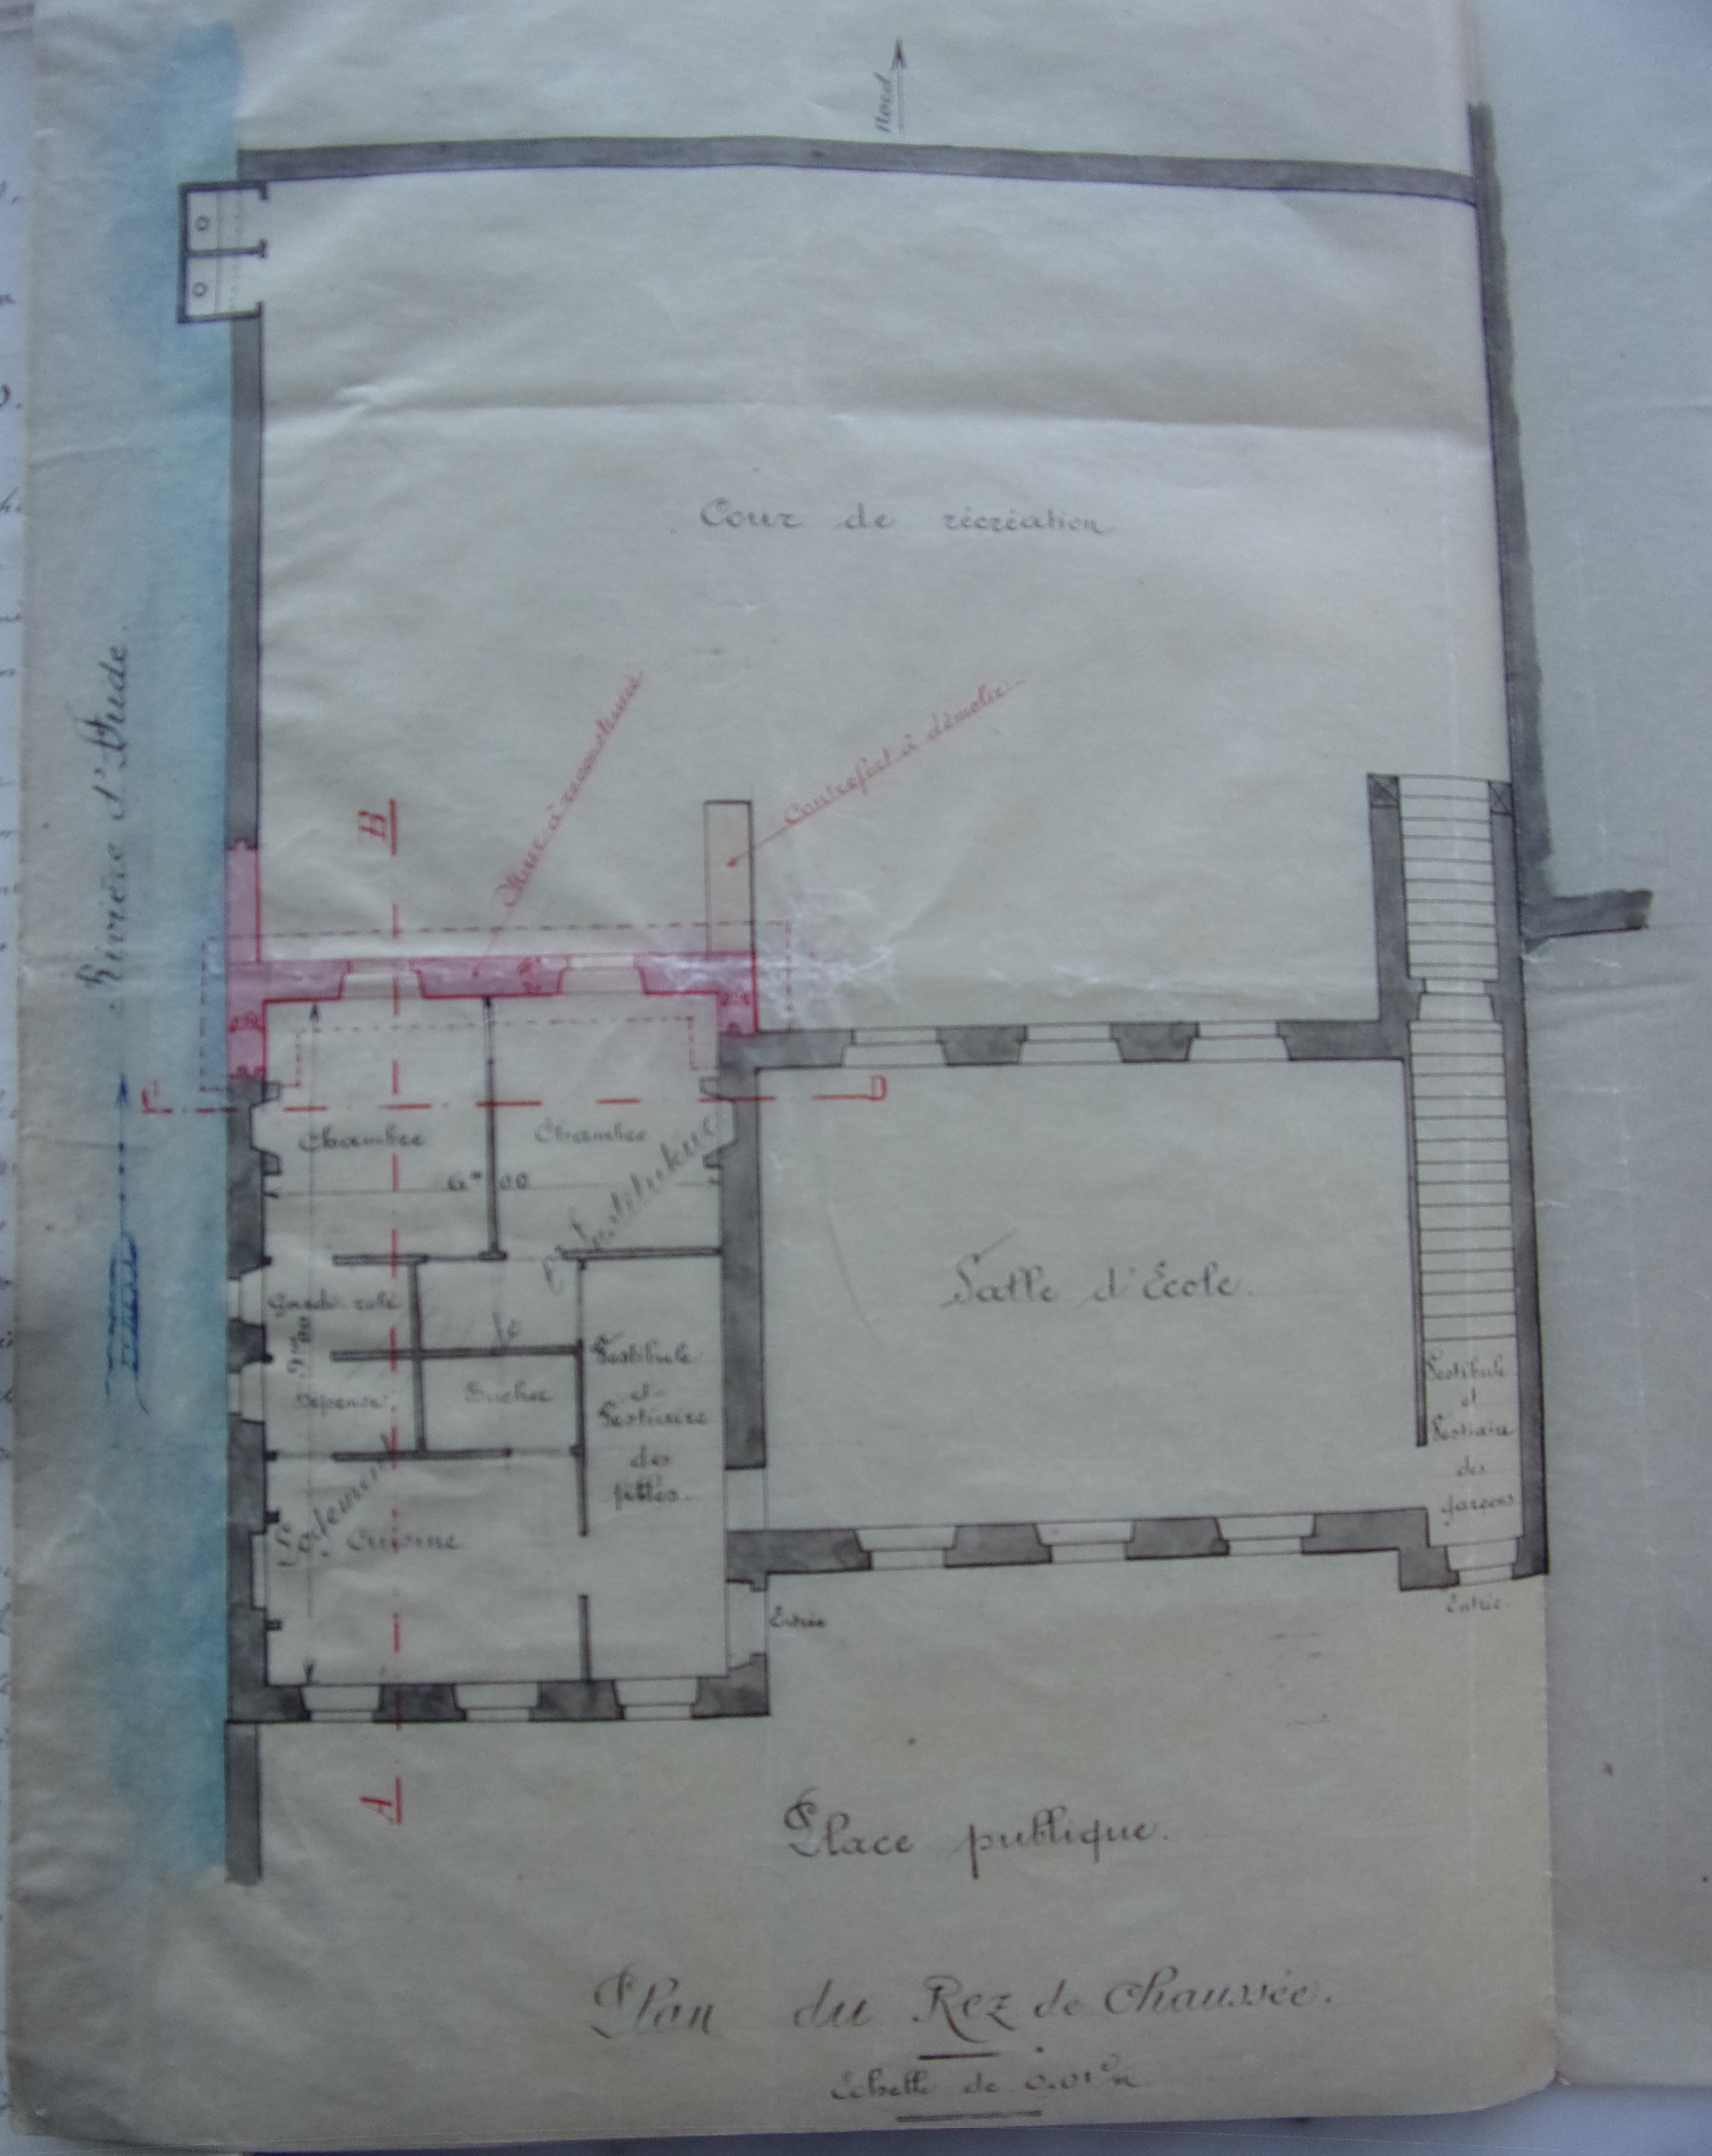 Nord
Cour de récréation
Rivière d'Aude.
Mur à reconstruire
Contrefort à démolir
B
C
D
Chambre
Chambre
6m00
Logement de l'Instituteur
Garde-robe
9m00
Dépense
Bucher
Vestibule
et
Vestiaire
des
filles.
Cuisine
Salle d'École.
Vestibule
et
Vestiaire
des
garçons
Entrée
Entrée
A
Place publique.
Plan du Rez de Chaussée.
Echelle de 0.01c/m